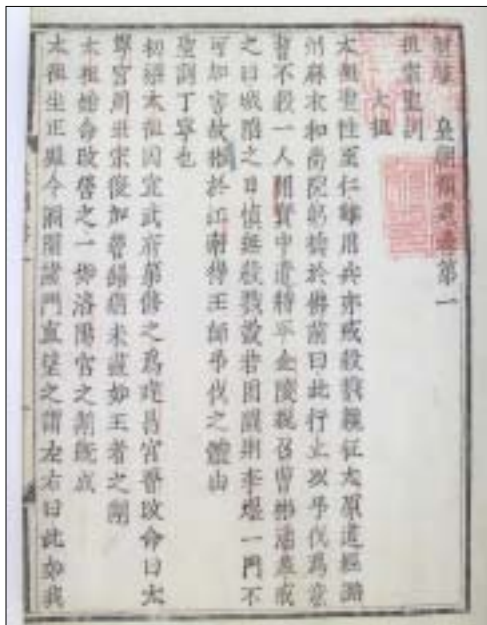 新雕　皇朝類苑卷第一
祖宗聖訓
太祖
太祖聖性至仁雖用兵亦戒殺戮親征太原道經潞
州麻衣和尚院躬禱於佛前曰此行止以弔伐爲意
誓不殺一人開寶中遣將平金陵親召曹彬潘美戒
之曰城陷之日慎無殺戮設若困鬬則李煜一門不
可加害故彬於江南得王師弔伐之體由
聖訓丁寧也
初梁太祖因宣武府第修之爲建昌宮晉改命曰大
寧宮周世宗復加營繕猶未盡如王者之制
太祖始命改營之一如洛陽宮之制既成
太祖坐正殿令洞開諸門直望之謂左右曰此如我